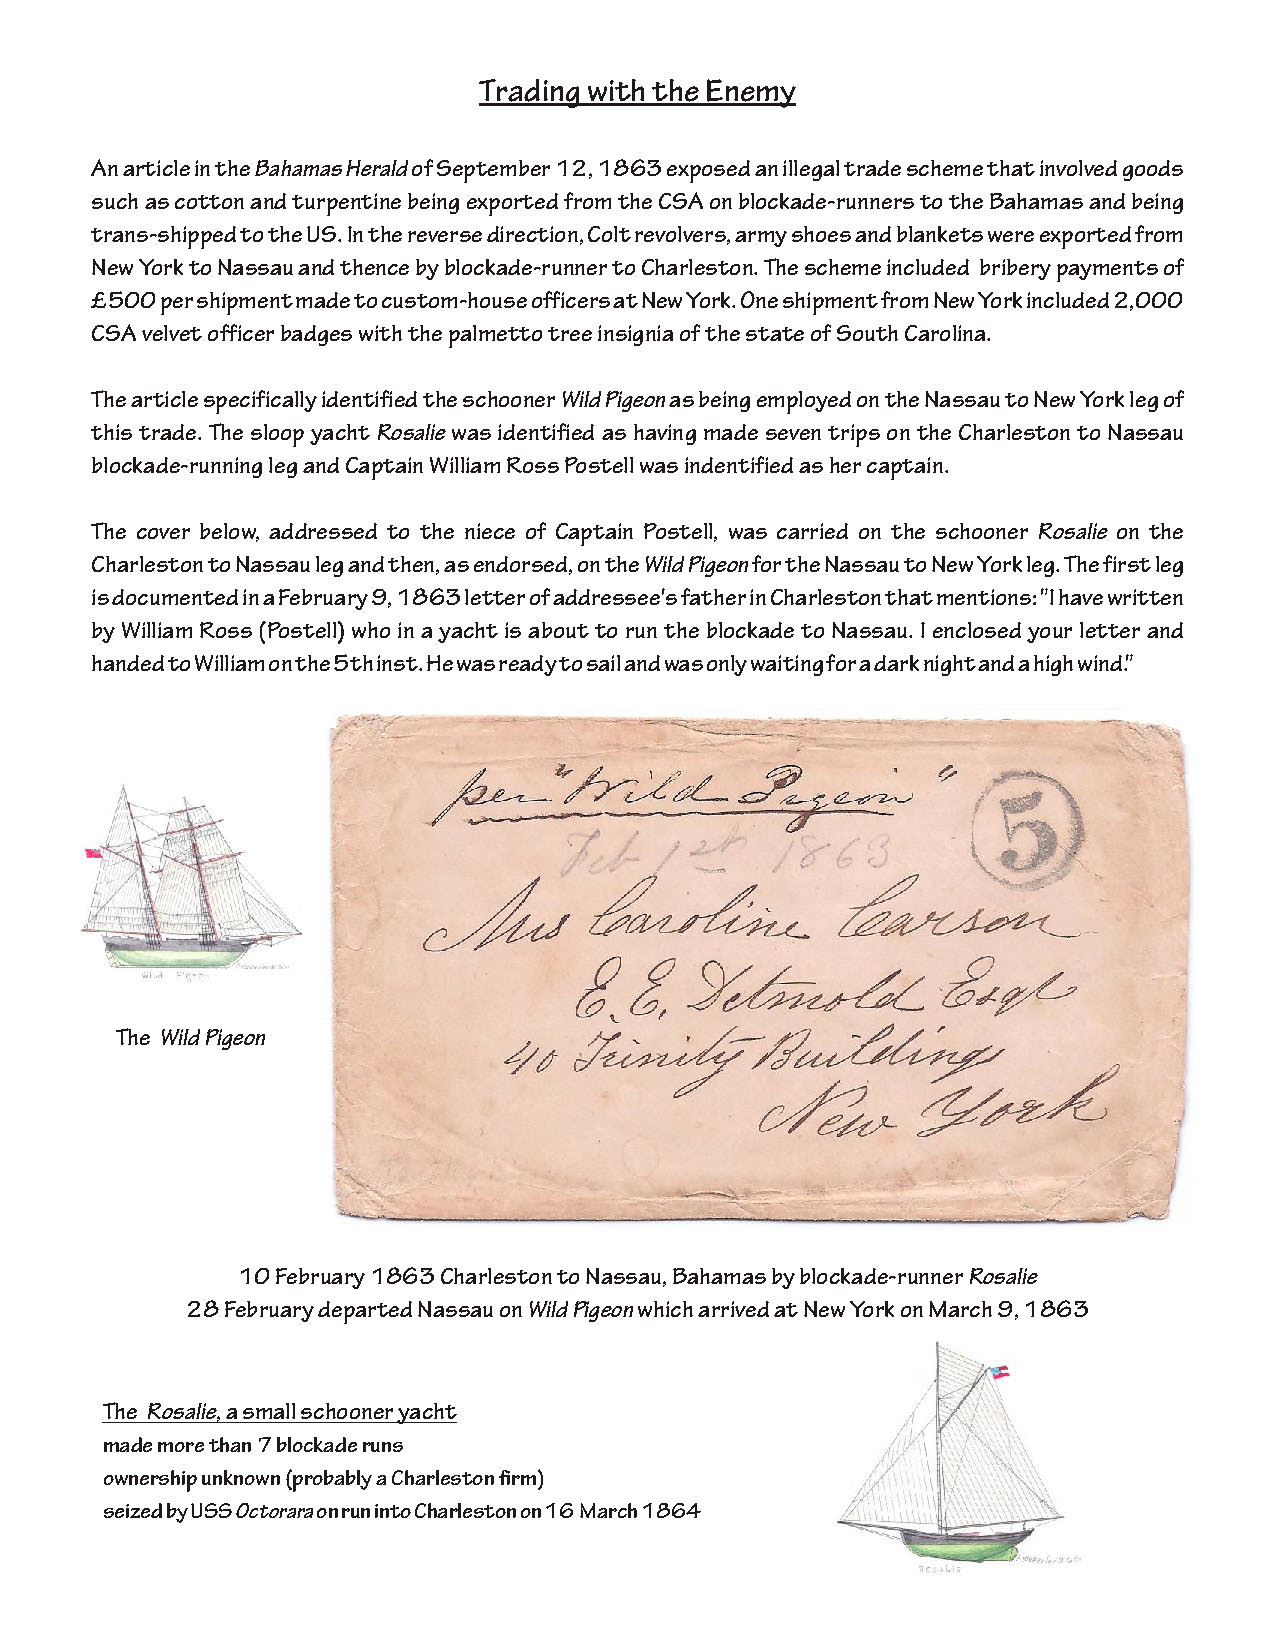 Trading with the Enemy
An article in the Bahamas Herald of September 12, 1863 exposed an illegal trade scheme that involved goods
such as cotton and turpentine being exported from the CSA on blockade-runners to the Bahamas and being
trans-shipped to the US. In the reverse direction, Colt revolvers, army shoes and blankets were exported from
New York to Nassau and thence by blockade-runner to Charleston. The scheme included bribery payments of
£500 per shipment made to custom-house officers at New York. One shipment from New York included 2,000
CSA velvet officer badges with the palmetto tree insignia of the state of South Carolina.
The article specifically identified the schooner Wild Pigeon as being employed on the Nassau to New York leg of
this trade. The sloop yacht Rosalie was identified as having made seven trips on the Charleston to Nassau
blockade-running leg and Captain William Ross Postell was indentified as her captain.
The cover below, addressed to the niece of Captain Postell, was carried on the schooner Rosalie on the
Charleston to Nassau leg and then, as endorsed, on the Wild Pigeon for the Nassau to New York leg. The first leg
is documented in a February 9, 1863 letter of addressee's father in Charleston that mentions: "I have written
by William Ross (Postell) who in a yacht is about to run the blockade to Nassau. I enclosed your letter and
handed to William on the 5th inst. He was ready to sail and was only waiting for a dark night and a high wind."
per "Wild Pigeon"
5
Feb 1st 1863
Mrs Caroline Carson
E. E. Detmold Esqr
40 Trinity Building
New York
Wild Pigeon
The Wild Pigeon
10 February 1863 Charleston to Nassau, Bahamas by blockade-runner Rosalie
28 February departed Nassau on Wild Pigeon which arrived at New York on March 9, 1863
The Rosalie, a small schooner yacht
made more than 7 blockade runs
ownership unknown (probably a Charleston firm)
seized by USS Octorara on run into Charleston on 16 March 1864
ROSALIE